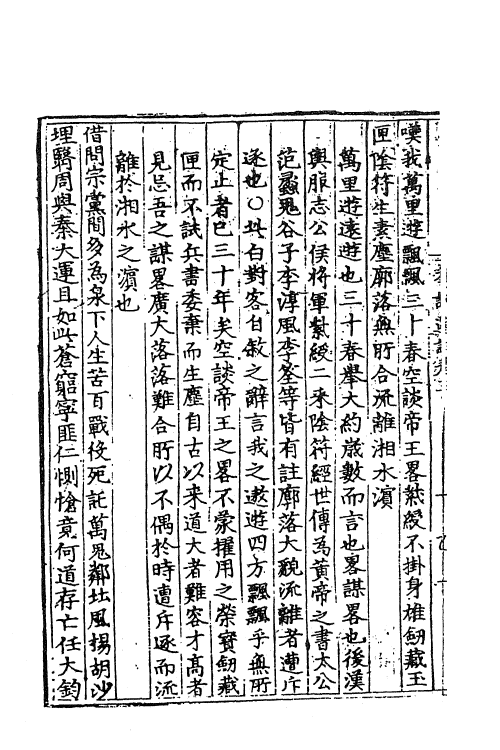 嘆我萬里遊飄飄三十春空談帝王畧紫綬不掛身雄劔藏玉
匣陰符生素塵廓落無所合流離湘水濱
萬里遊遠遊也三十春舉大約歲數而言也畧謀畧也後漢
輿服志公侯將軍紫綬二采陰符經世傳為黃帝之書太公
范蠡鬼谷子李淳風李筌等皆有註廓落大貌流離者遭斥
逐也○此白對客自敘之辭言我之遨遊四方飄飄乎無所
定止者已三十年矣空談帝王之畧不蒙擢用之榮寶劔藏
匣而不試兵書委棄而生塵自古以来道大者難容才髙者
見忌吾之謀畧廣大落落難合所以不偶於時遭斥逐而流
離於湘水之濵也
借問宗黨間多為泉下人生苦百戰役死託萬鬼鄰北風揚胡沙
埋翳周與秦大運且如此蒼窮寧匪仁惻愴竟何道存亡任大鈞